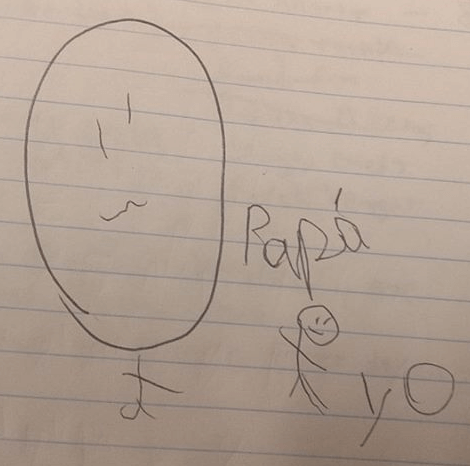 Papá
yo